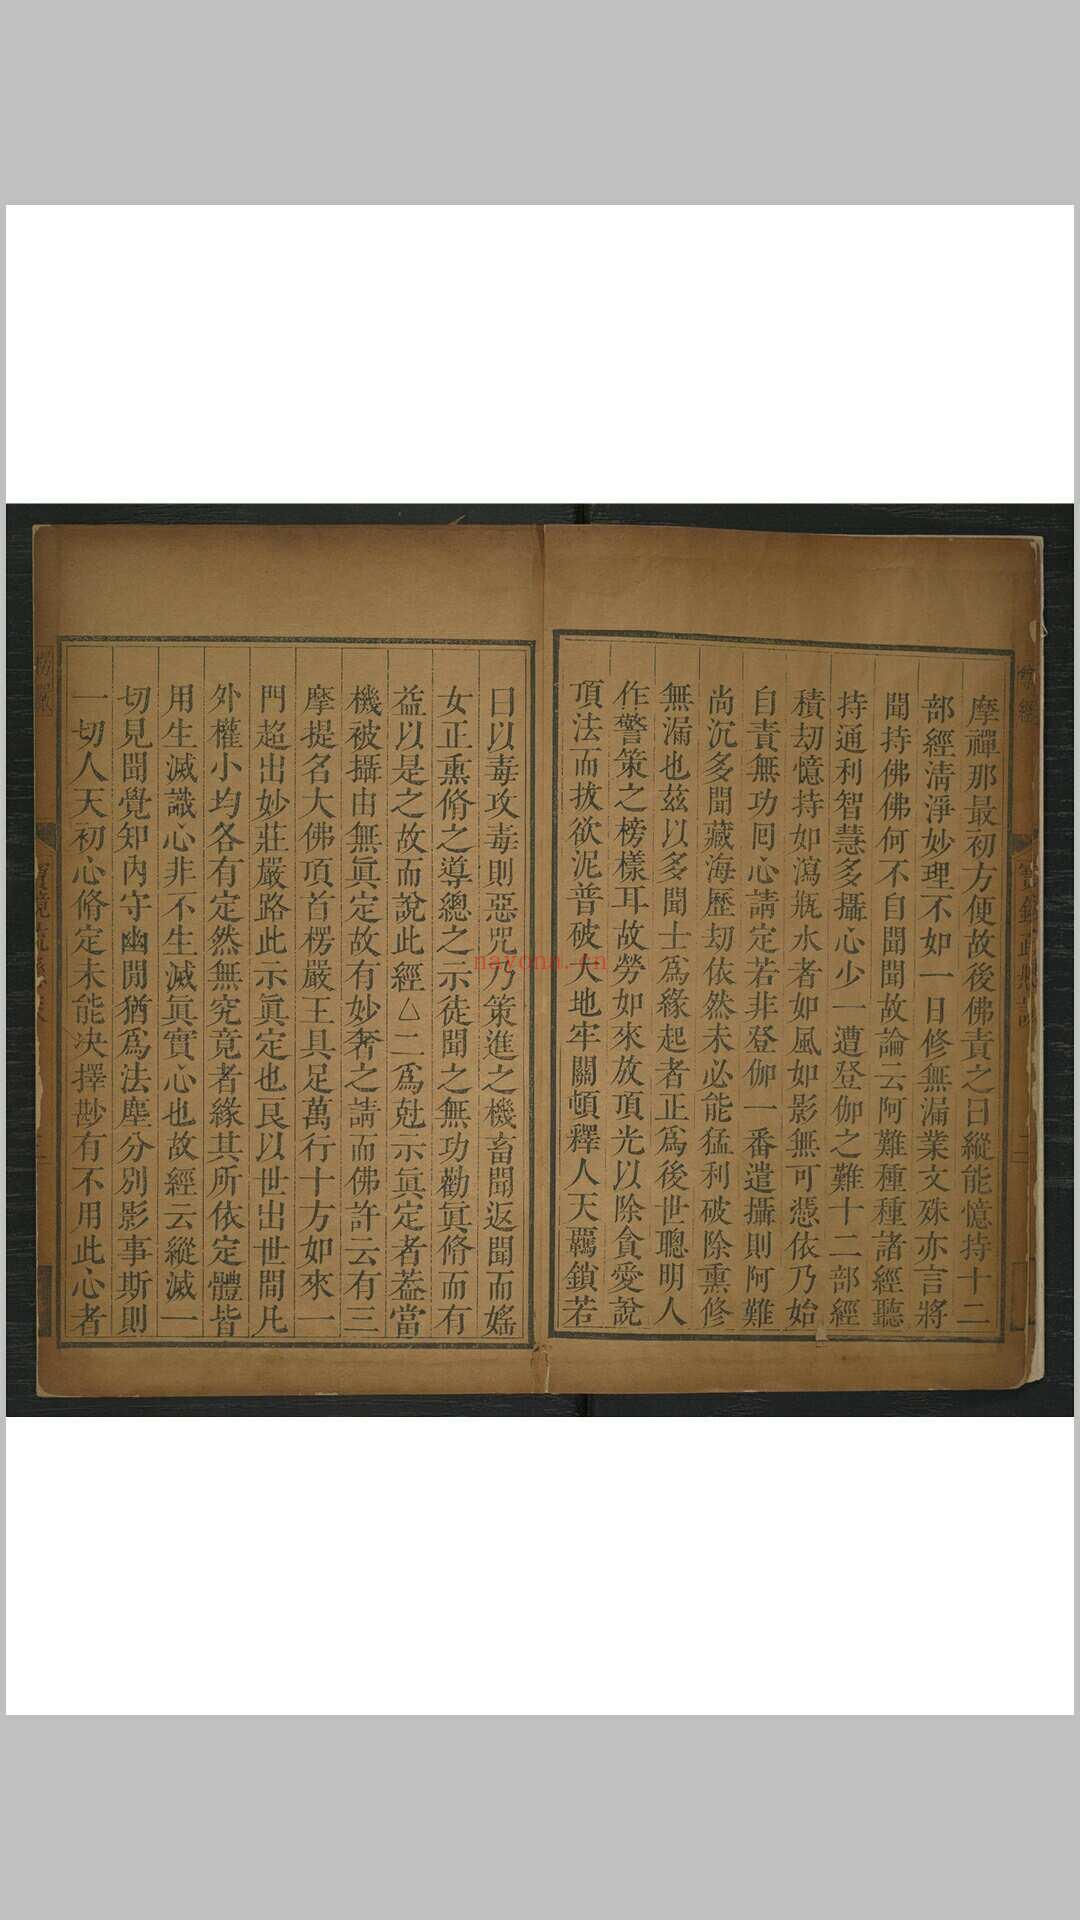 摩禪那最初方便故後佛責之曰縱能憶持十二
部經清淨妙理不如一日修無漏業文殊亦言將
聞持佛佛何不自聞聞故論云阿難種種諸經聽
持通利智慧多攝心少一遭登伽之難十二部經
積劫憶持如瀉瓶水者如風如影無可憑依乃始
自責無功囘心請定若非登伽一番遣攝則阿難
尚沉多聞藏海歷劫依然未必能猛利破除熏修
無漏也茲以多聞士爲緣起者正爲後世聰明人
作警策之榜樣耳故勞如來放頂光以除貪愛說
頂法而拔欲泥普破大地牢關頓釋人天羈鎖若
曰以毒攻毒則惡咒乃策進之機畜聞返聞而婬
女正熏脩之導總之示徒聞之無功勸眞脩而有
益以是之故而說此經△二爲尅示眞定者葢當
機被攝由無眞定故有妙奢之請而佛許云有三
摩提名大佛頂首楞嚴王具足萬行十方如來一
門超出妙莊嚴路此示眞定也良以世出世間凡
外權小均各有定然無究竟者緣其所依定體皆
用生滅識心非不生滅眞實心也故經云縱滅一
切見聞覺知內守幽閒猶爲法塵分別影事斯則
一切人天初心脩定未能決擇尠有不用此心者
nayona.cn